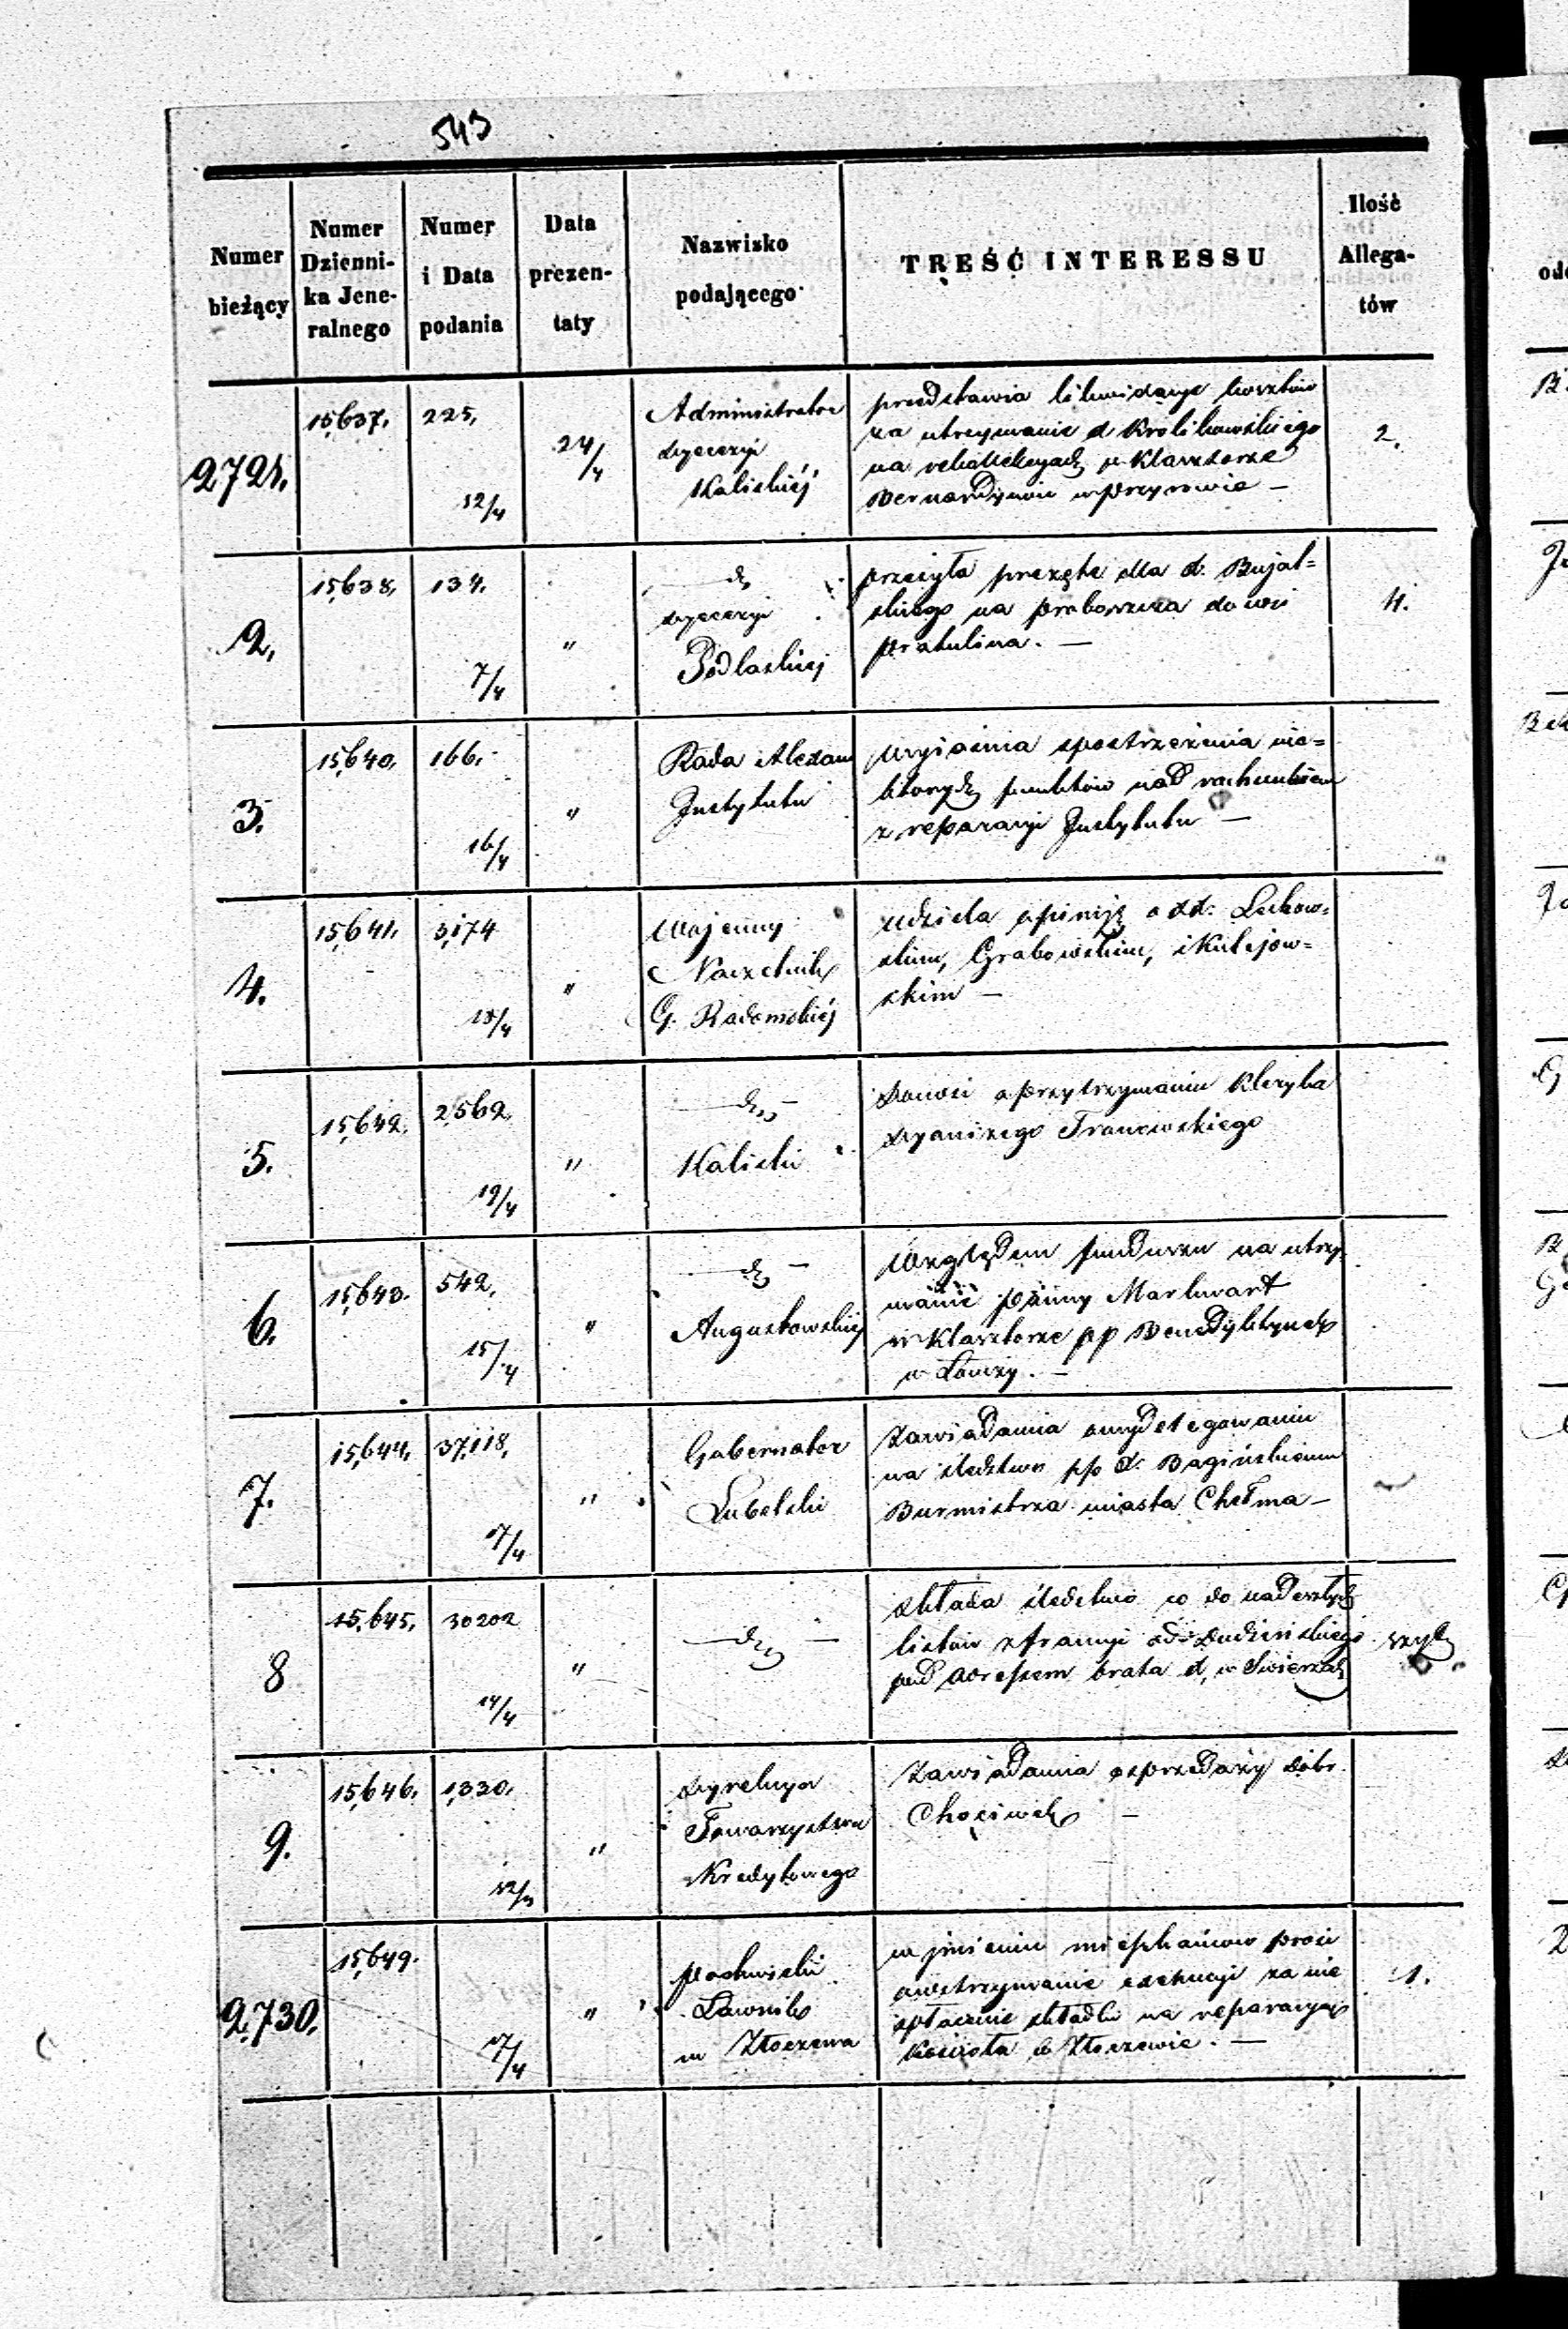 543
Numer bieżący
Numer Dzienni-
ka Jene-
ralnego
Numer i Data podania
Data prezen-
taty
Nazwisko podającego
TREŚĆ INTERESSU
Ilość Allega-
tów
2721.
15,637.
225,
12/4
24/4
Administrator
dyecezyi
Kaliskiéj
przedstawia likwidacye kosztów
za utrzymanie X Krolikowskiego
na rekollekcyach w Klasztorze
Bernardynów w Przyrowie —
2.
2,
15,638,
134.
7/4
"
dto
dyecezyi
Podlaskiej
przesyła prezętę dla X. Bujal=
skiego na proboszcza do wsi
Pratulina. —
4.
3.
15,640,
166.
16/4
"
Rada Alexan
Instytutu
wyjaśnia spostrzeżenia nie=
których punktów nad rachunkiem
z reparacyi Instytutu —
4.
15,641.
3,174
18/4
"
Wojenny
Naczelnik
G. Radomskiéj
udziela opiniję o XX. Leckow=
skim, Grabowskim, i Kulejow=
skim —
5.
15,642.
2,562
19/4
"
dto —
Kaliski
Donosi o przytrzymaniu Kleryka
Franowskiego
6.
15,643.
542.
15/4
"
dto —
Augustowskiej
Względem funduszu na utrzy
manie panny Markwart
w Klasztorze pp Benedyktynek
w Łomży. —
7.
15,644.
37,118,
17/4
"
Gubernator
Lubelski
Zawiadamia o wydelegowaniu
na śledztwo p/o X. Bagińskiemu
Burmistrza miasta Chełma —
8
15,645,
30202
14/4
"
dto —
składa śledztwo co do nadeszłych
listów z francyi od Dudzińskiego
pod adressem brata X, w Swierzach
szyk
9.
15,646.
1,330.
12/4
"
Dyrekcya
Towarzystwa
Kredytowego
Zawiadamia o sprzedaży dóbr
Chociwek —
2,730.
15,649.
17/4
"
Ławnik
m Złoczewa
w imieniu mieszkańców prosi
o wstrzymanie exekucyi za nie
opłacenie składki na reparacyę
Kościoła w Złoczewie. —
1.